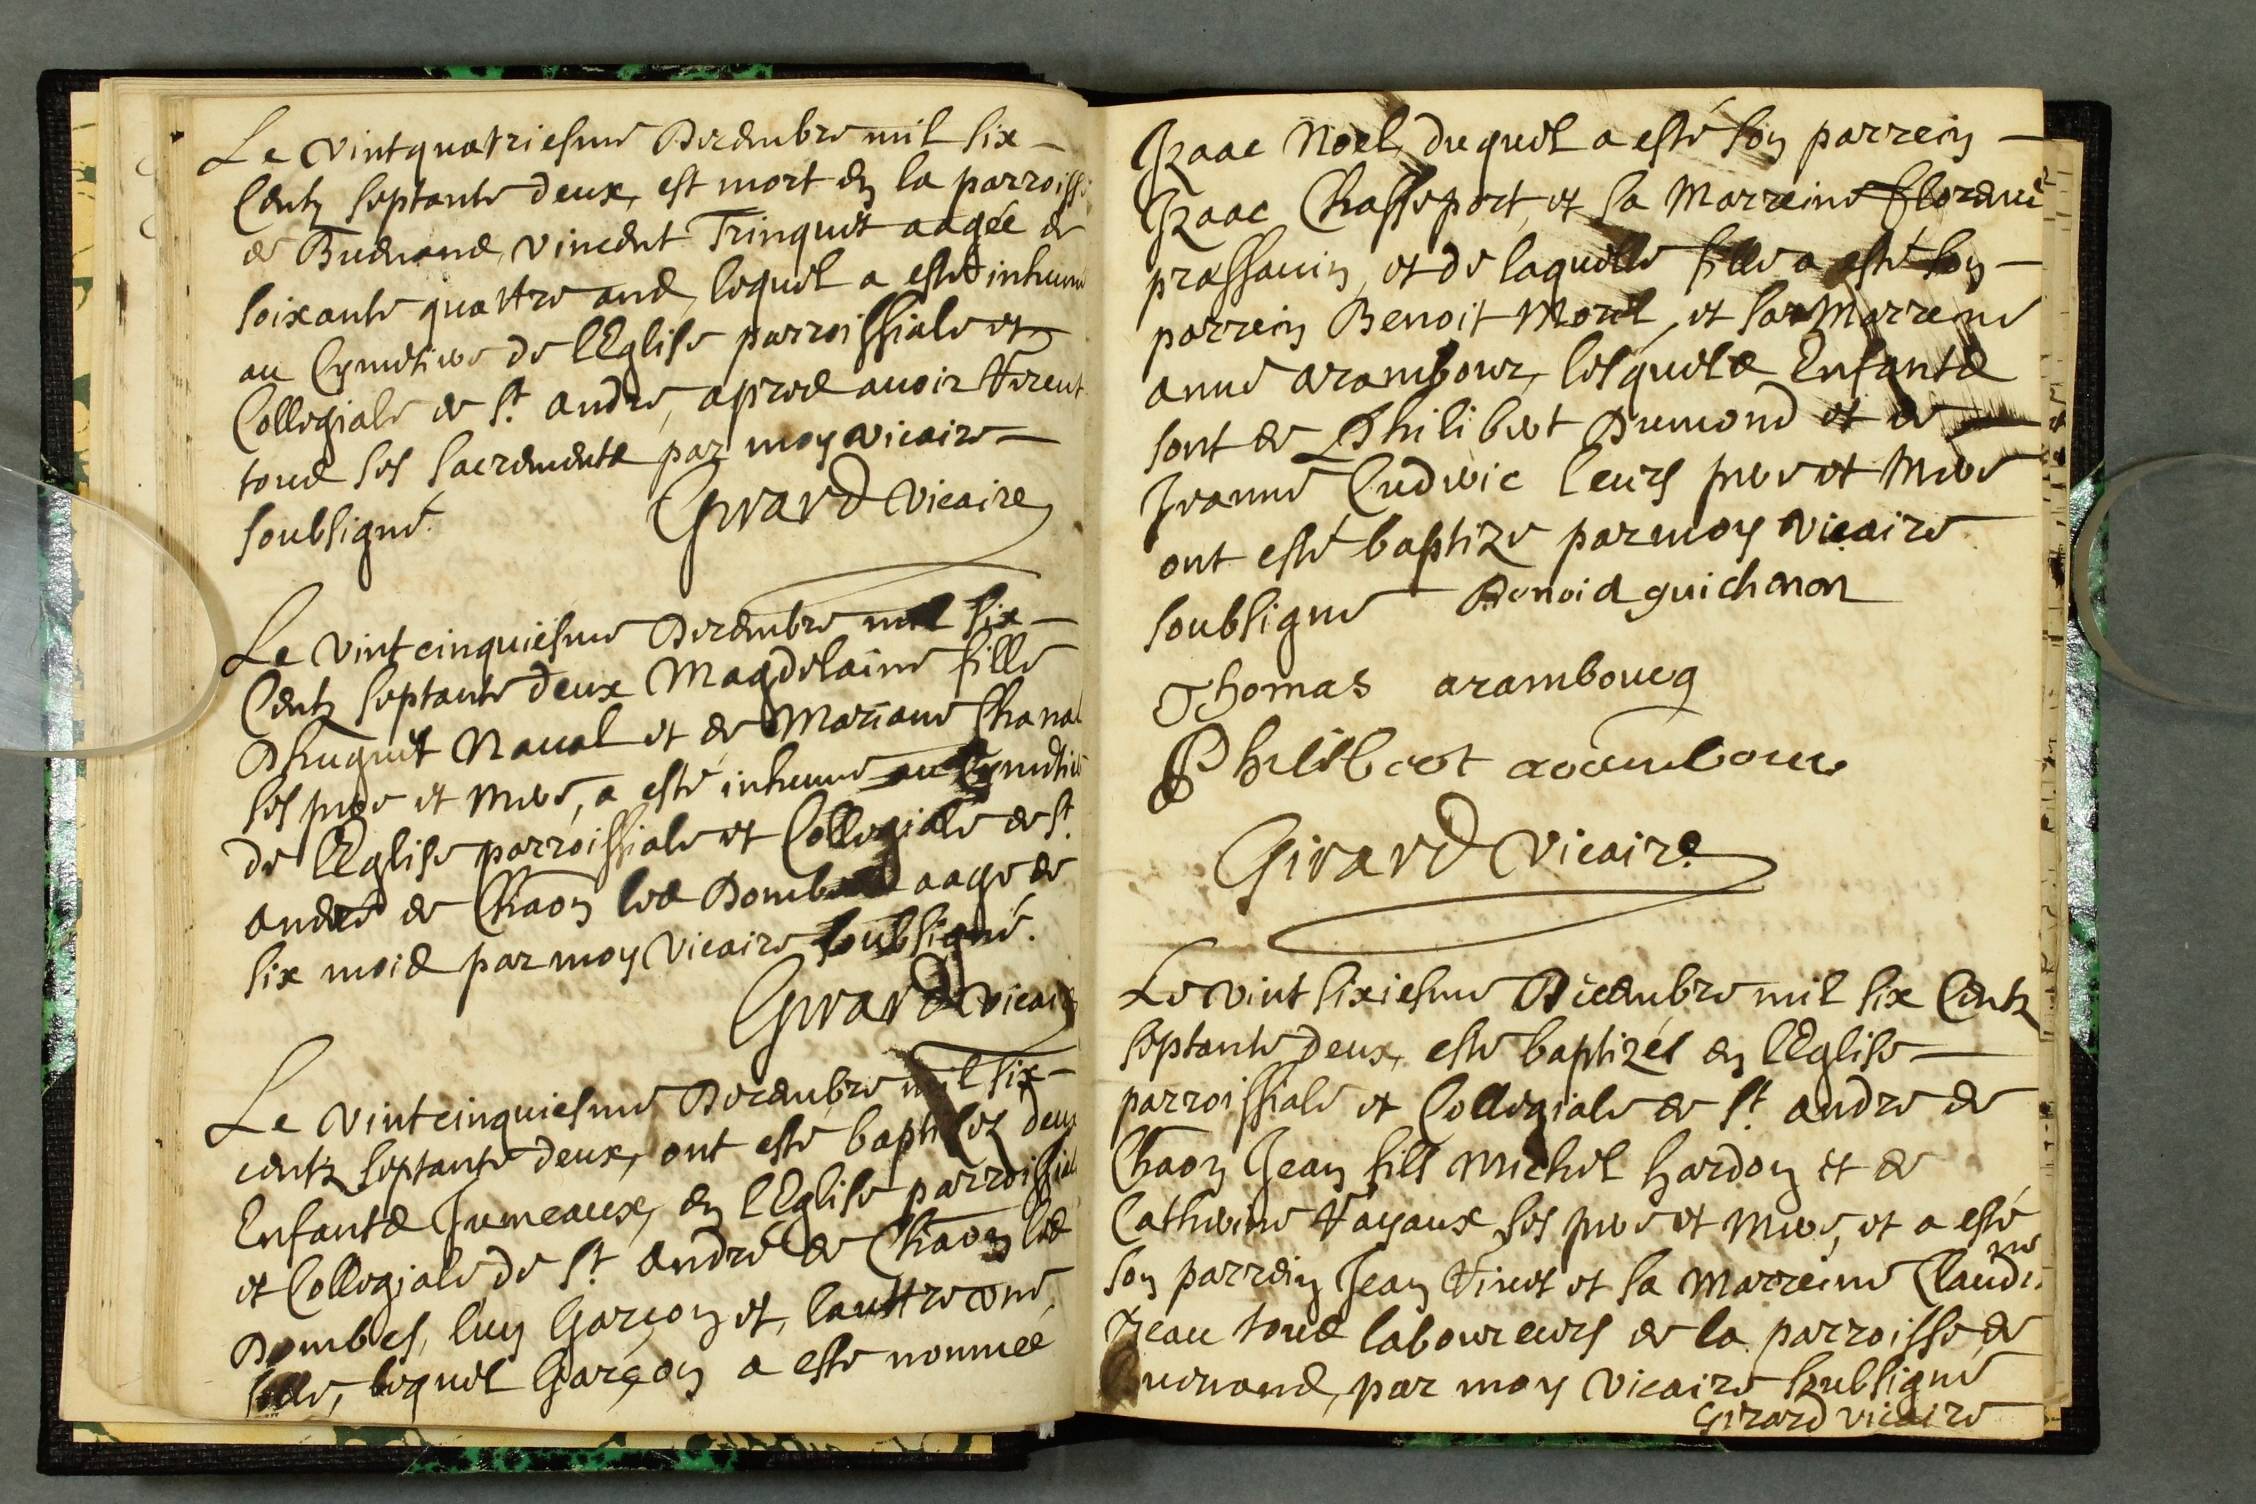 Le vintquatriesme Decembre mil six
Centz septante deux, est mort en la parroisse
de Buenand, vincent Trinquet aagée de
soixante quattre ans, lequel a esté inhumé
au Cymetiere de l'Eglise parroissiale et
Collegiale de St. andré, apres auoir receut
tous ses sacrements par moy vicaire
soubsigné. Girard vicaire
Le vintcinquiesme Decembre mil six
Centz septante deux Magdelaine fille
D'huguet Naual et de Mariane Chanal
ses pere et mere, a esté inhumé au Cymetiere
de l'Eglise parroissiale et Collegiale de St.
andré de Chaon les Dombes aage de
six mois par moy vicaire soubsigné.
Girard vicaire
Le vintcinquiesme Decembre mil six
centz septante deux, ont esté baptisez deux
Enfants Jumeaux, en l'Eglise parroissiale
et Collegiale de St. andré de Chaon les
Dombes, luy Garçon et, lauttre une
fille, lequel Garçon a esté nommée
Izaac Noel, duquel a esté son parrein
Izaac Chasseport, et sa Marreine Florence
prassauin, et de laquelle fille a esté son
parrein Benoit Morel, et sa Marreine
anne arambour, lesquels Enfants
sont de Philibert Dumond et de
Jeanne Ludwic leurs pere et Mere
ont esté baptize par moy vicaire
soubsigné Benoid guichenon
Thomas arambourg
Philibert arambour
Girard vicaire
Le vint sixiesme Decembre mil six Centz
septante deux, esté baptizés en l'Eglise
parroissiale et Collegiale de St. andre de
Chaon Jean fils Michel hardon et de
Catherine Vayaux ses pere et Mere, et a esté
son parrein Jean Vinet et sa Marreine Claudine
Jeau tous laboureurs de la parroisse de
Buenand, par moy vicaire soubsigné
Girard vicaire